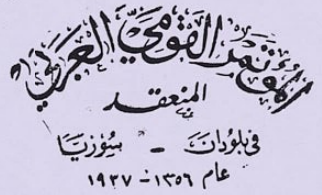 المؤتمر القومي العربي
المنعقد
في بلودان - سوريا
عام ١٣٥٦ - ١٩٣٧